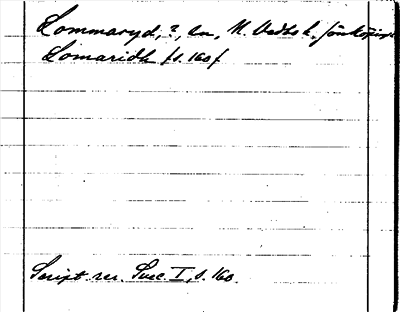 Lommaryd, ?, ln, N. Vedbo h. Jönköpings
Lomaridh /s. 160/
Script. rer. Suec. I, s. 160.